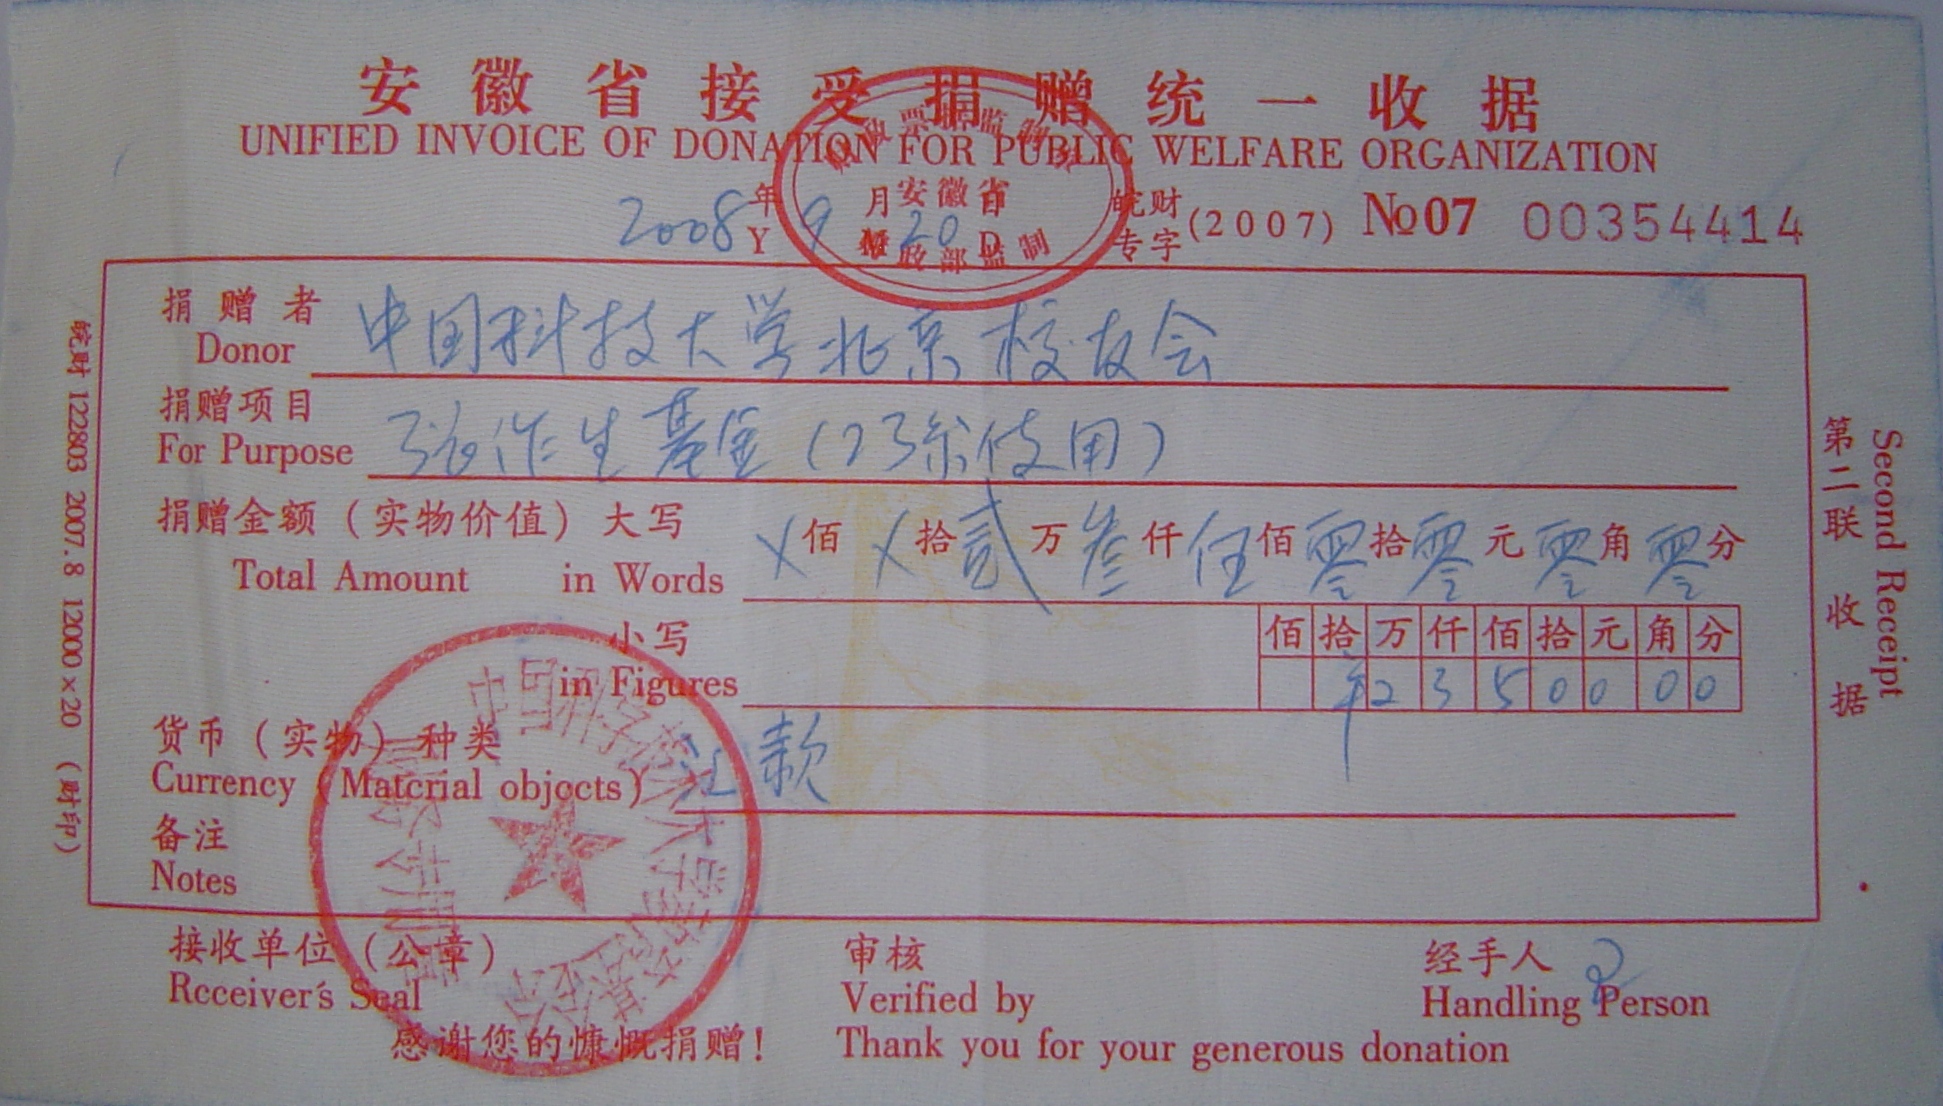 安徽省接受捐赠统一收据
UNIFIED INVOICE OF DONATION FOR PUBLIC WELFARE ORGANIZATION
2008年 9月 20日
Y M D
皖财专字(2007) №07 00354414
安徽省
财政部监制
捐赠者 中国科技大学北京校友会
Donor
捐赠项目 基金(23系使用)
For Purpose
捐赠金额(实物价值)大写 X佰X拾贰万叁仟伍佰零拾零元零角零分
Total Amount in Words
小写 佰拾万仟佰拾元角分
in Figures ¥2350000
货币(实物)种类 汇款
Currency (Material objects)
备注
Notes
接收单位(公章) 审核 经手人
Receiver's Seal Verified by Handling Person
感谢您的慷慨捐赠! Thank you for your generous donation
皖财 122803 2007.8 12000×20 (财印)
第二联 收据
Second Receipt
中国科学技术大学教育基金会